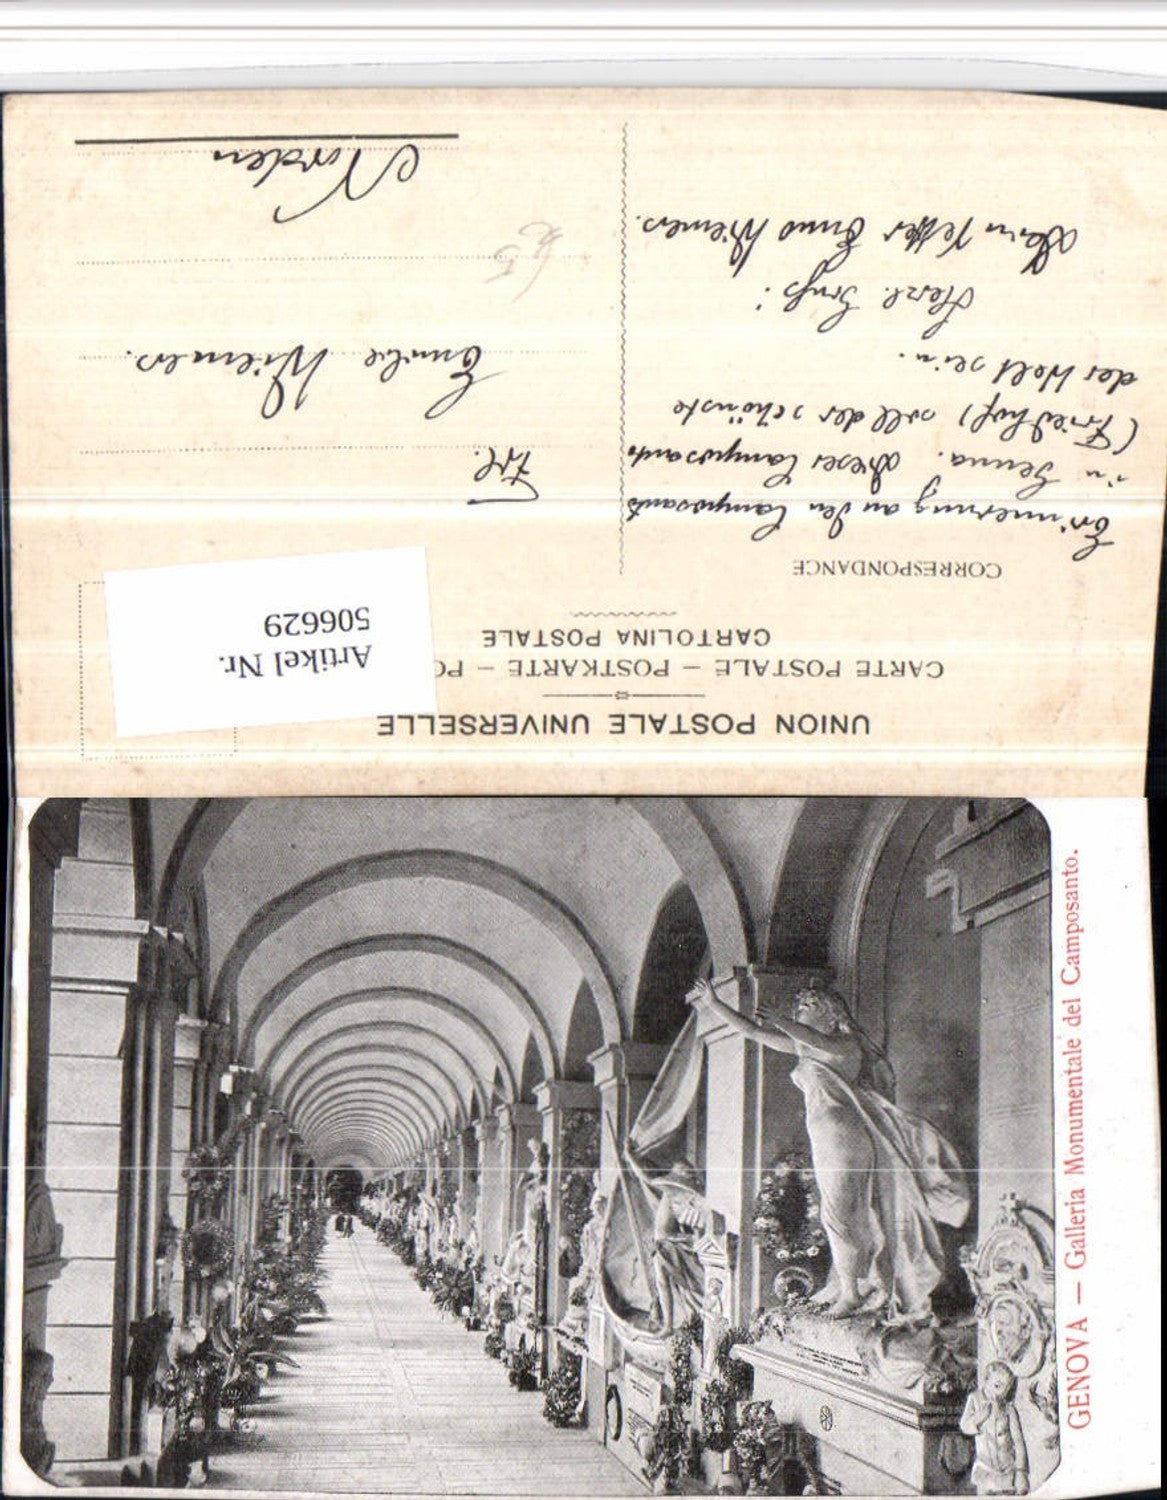 UNION POSTALE UNIVERSELLE
CARTE POSTALE – POSTKARTE – PO
CARTOLINA POSTALE
CORRESPONDANCE
Artikel Nr.
506629
Erinnerung an den Camposanto
in Genua. Dieser Camposanto
(Friedhof) soll der schönste
der Welt sein.
Herzl. Gruß!
Dein Vetter Enno Wiemers.
Frl.
Emilie Wiemers.
Norden
GENOVA — Galleria Monumentale del Camposanto.